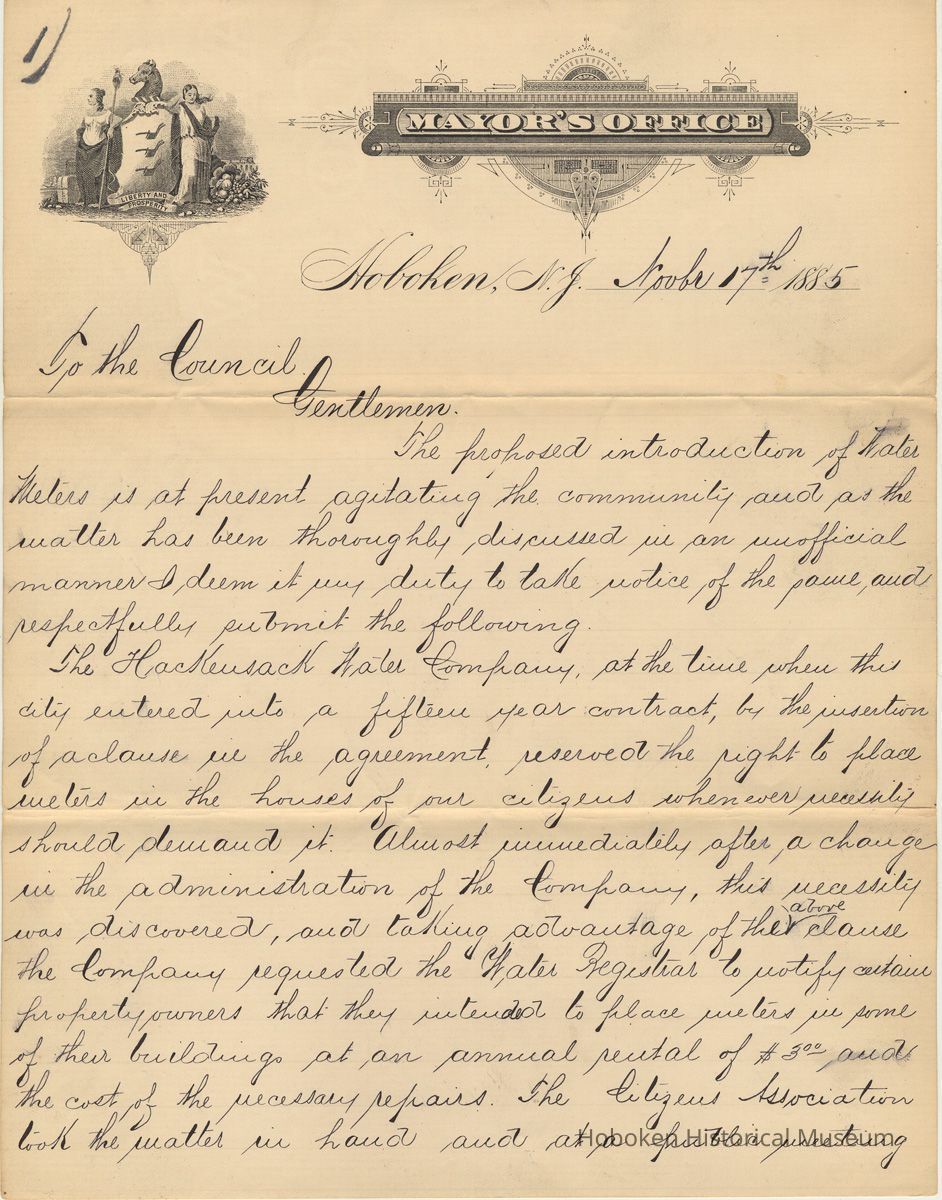 1)
LIBERTY AND
PROSPERITY
MAYOR'S OFFICE
Hoboken, N.J. Novbr 17th 1885
To the Council.
Gentlemen.
The proposed introduction of Water
Meters is at present agitating the community and as the
matter has been thoroughly discussed in an unofficial
manner I deem it my duty to take notice of the same, and
respectfully submit the following.
The Hackensack Water Company, at the time when this
city entered into a fifteen year contract, by the insertion
of a clause in the agreement, reserved the right to place
meters in the houses of our citizens whenever necessity
should demand it. Almost immediately after a change
in the administration of the Company, this necessity
above
was discovered, and taking advantage of the clause
the Company requested the Water Registrar to notify certain
property owners that they intended to place meters in some
of their buildings at an annual rental of $3.00 and
the cost of the necessary repairs. The Citizens Association
took the matter in hand and at a public meeting
Hoboken Historical Museum